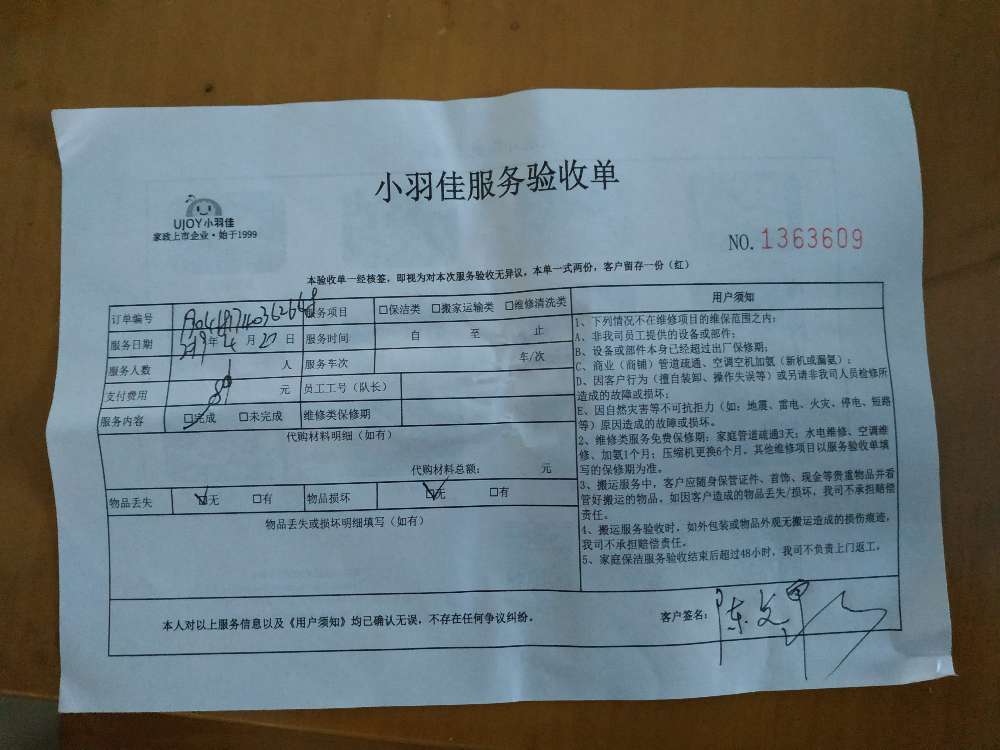 小羽佳服务验收单
UJOY小羽佳
家政上市企业·始于1999
NO. 1363609
本验收单一经核签，即视为对本次服务验收无异议，本单一式两份，客户留存一份（红）
订单编号 服务项目 □保洁类 □搬家运输类 □维修清洗类
服务日期 2019年 4月 20日 服务时间 自 至 止
服务人数 1 人 服务车次 车/次
支付费用 89 元 员工工号（队长）
服务内容 □完成 □未完成 维修类保修期
代购材料明细（如有）
代购材料总额： 元
物品丢失 □无 □有 物品损坏 □无 □有
物品丢失或损坏明细填写（如有）
用户须知
1、下列情况不在维修项目的维保范围之内：
A、非我司员工提供的设备或部件；
B、设备或部件本身已经超过出厂保修期；
C、商业（商铺）管道疏通、空调空机加氨（新机或漏氨）；
D、因客户行为（擅自装卸、操作失误等）或另请非我司人员检修所
造成的故障或损坏；
E、因自然灾害等不可抗拒力（如：地震、雷电、火灾、停电、短路
等）原因造成的故障或损坏。
2、维修类服务免费保修期：家庭管道疏通3天；水电维修、空调维
修、加氨1个月；压缩机更换6个月，其他维修项目以服务验收单填
写的保修期为准。
3、搬运服务中，客户应随身保管证件、首饰、现金等贵重物品并看
管好搬运的物品，如因客户造成的物品丢失/损坏，我司不承担赔偿
责任。
4、搬运服务验收时，如外包装或物品外观无搬运造成的损伤痕迹，
我司不承担赔偿责任。
5、家庭保洁服务验收结束后超过48小时，我司不负责上门返工。
本人对以上服务信息以及《用户须知》均已确认无误，不存在任何争议纠纷。
客户签名：陈文